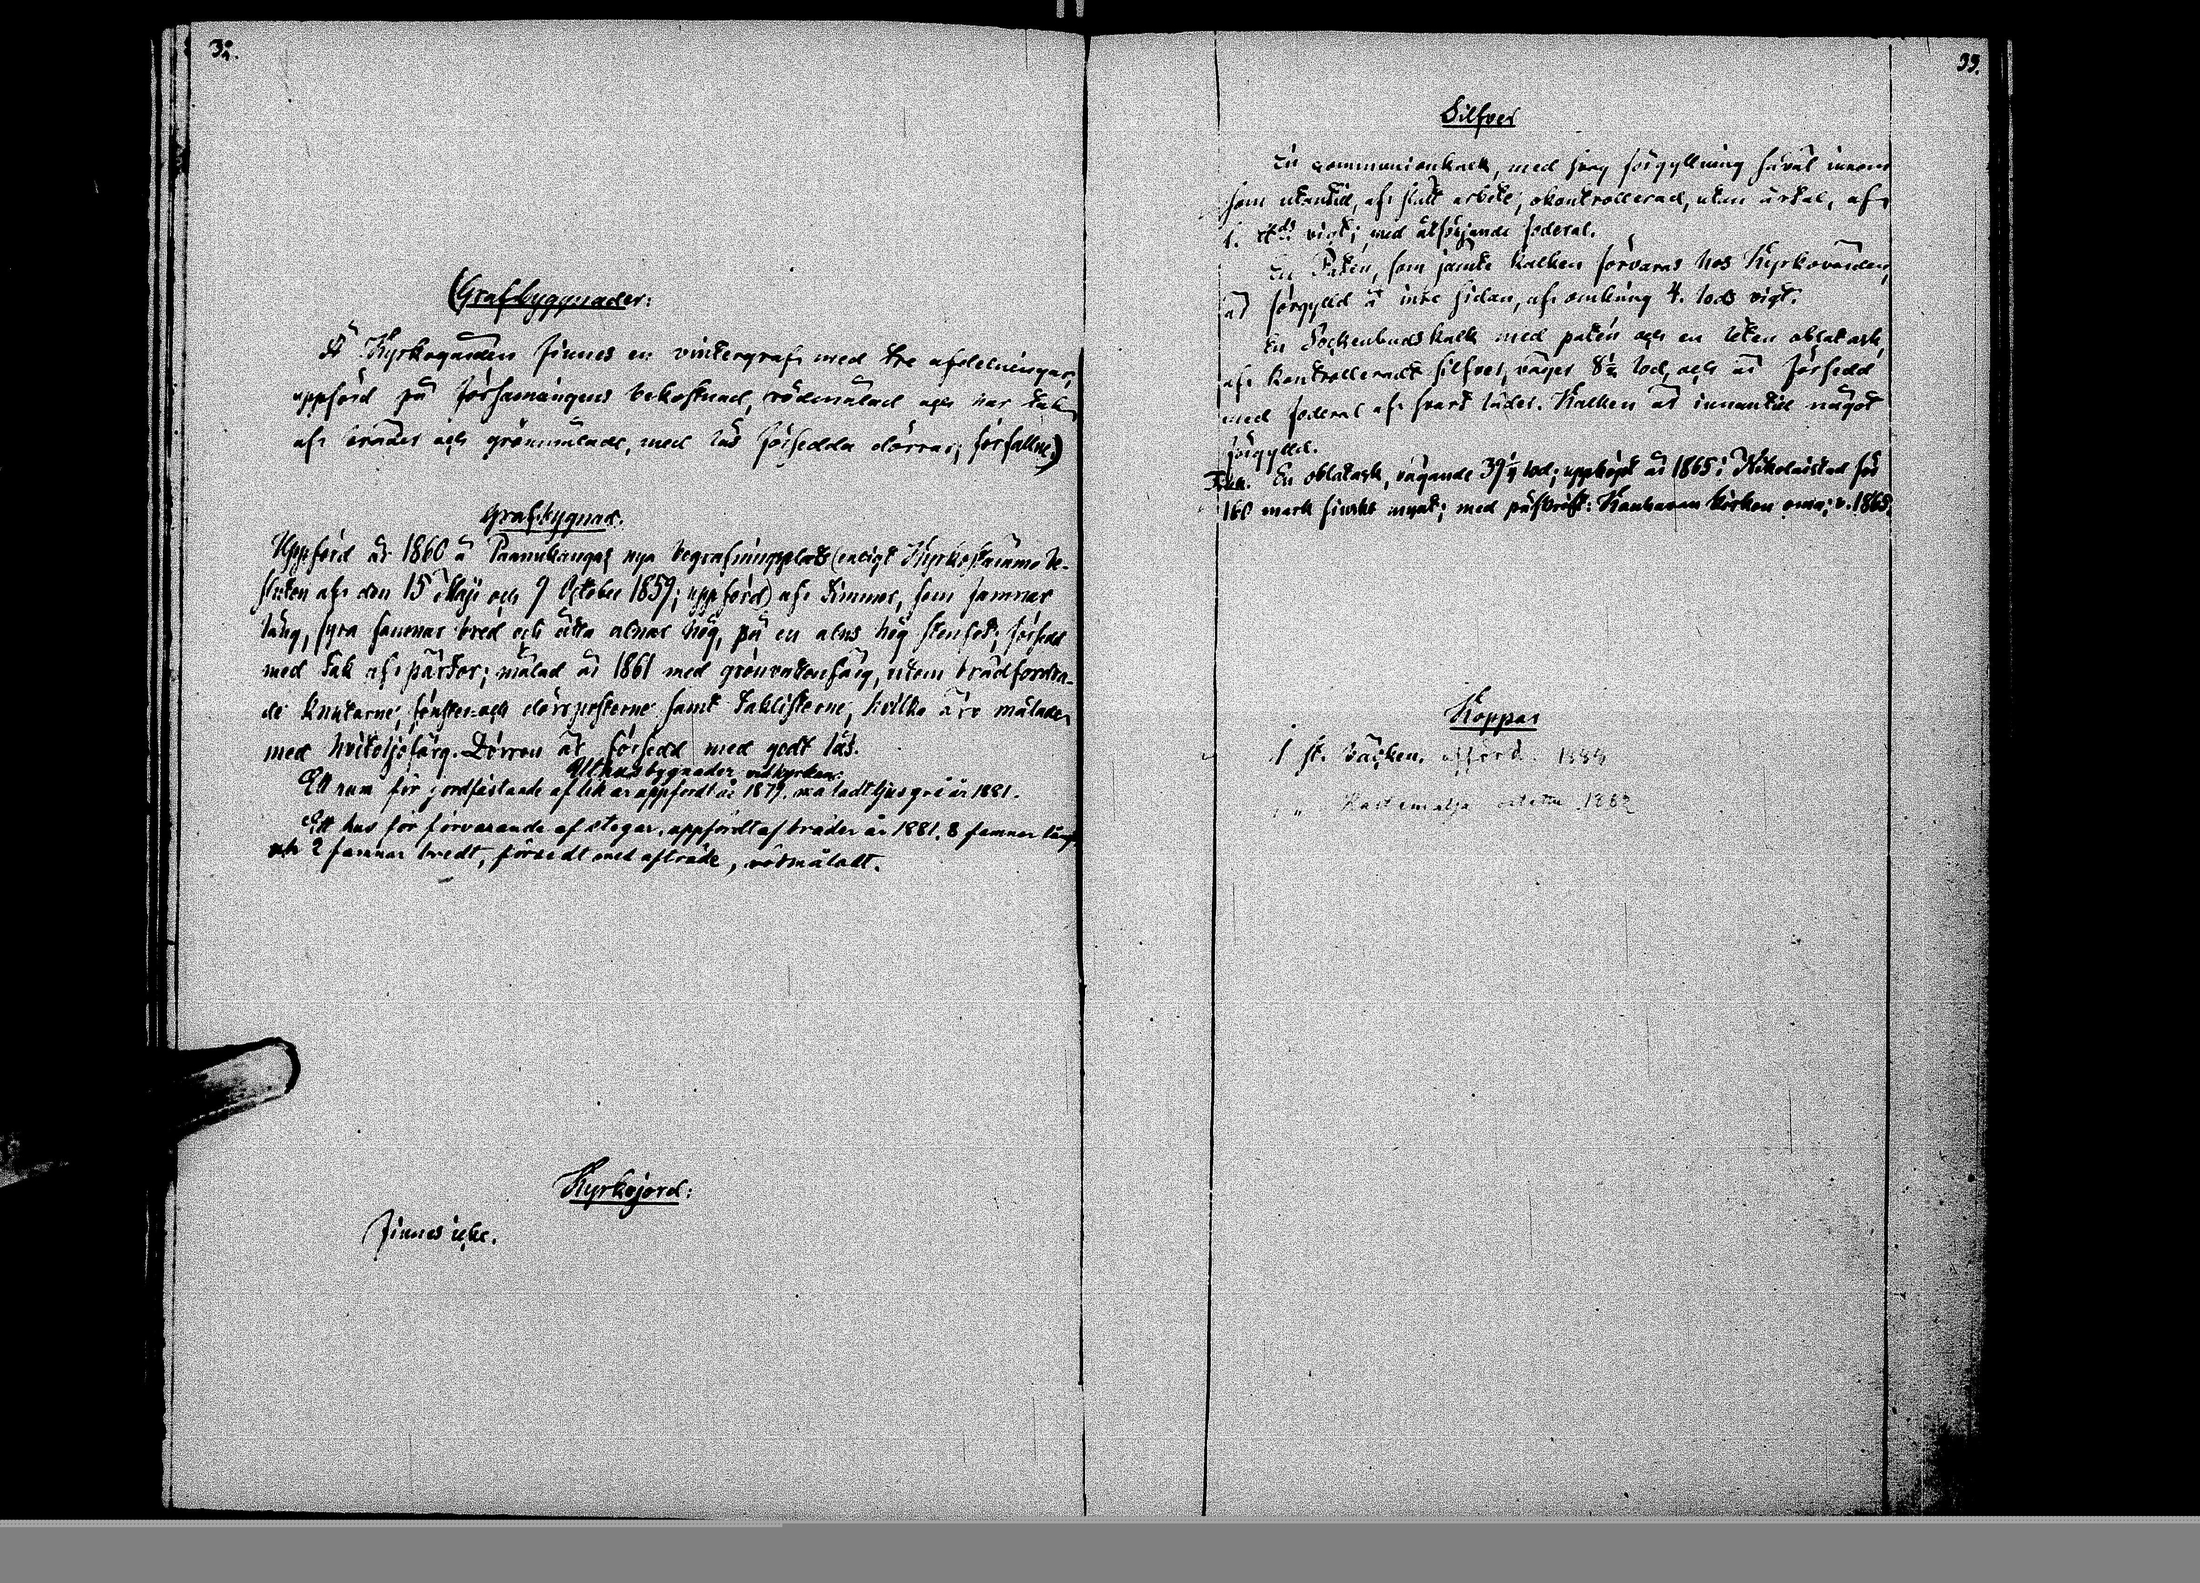 32.
(Grafbyggnader:
Å Kyrkogården finnes en vintergraf med tre afdelningar,
uppförd på församlingens bekostnad, rödmålad och har tak
af bräder och grönmålade, med lås försedda dörrar; förfallne.)
Grafbygnad.
Uppförd år 1860 å Paanukangas nya begrafningsplats (enligt Kyrkostämmobe-
sluten af den 15 Maji och 9 October 1859; uppförd) af timmer, fem famnar
lång, fyra famnar bred och åtta alnar hög, på en alns hög stenfot; försedd
med tak af pärtor; målad år 1861 med grönvattenfärg, utom brädfordra-
de knutarne, fönster- och dörrposterne samt taklisterne, hvilka äro målade
med hvitoljefärg. Dörren är försedd med godt lås.
Uthusbygnader vid kyrkan:
Ett rum för jordfästande af lik är uppfördt år 1879. måladt ljusgrå år 1881.
Ett hus för förvarande af stegar, uppfördt af bräder år 1881. 8 famnar långt
och 2 famnar bredt, försedt med afträde, rödmåladt.
Kyrkojord:
Finnes icke.
33.
Silfver
En communionkalk, med svag förgyllning såväl innom
som utantill, af slätt arbete; okontrollerad, utan årtal, af
1. vigt; med åtföljande foderal.
En Patén, som jämte kalken förvaras hos Kyrkovärden,
är förgylld å inre sidan, af omkring 4. lods vigt.
En Sockenbudskalk med patén och en liten oblatask,
af kontrolleradt silfver, väger 8½ lod, och är försedd
med foderal af svart läder. Kalken är innantill något
förgylld.
En oblatask, vägande 39¼ lod; uppköpt år 1865 i Nikolaistad för
160 mark finskt mynt; med påskrift: Kauhavan kirkon oma; v. 1865.
Koppar
1 st. Bäcken.